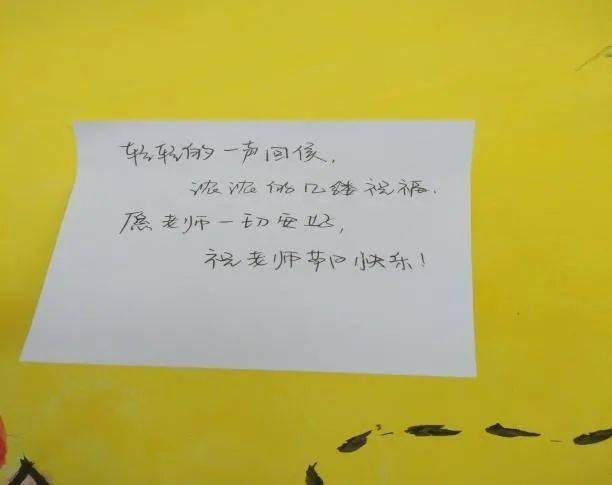 轻轻的一声问侯,
浓浓的几缕祝福.
愿老师一切安好,
祝老师节日快乐!